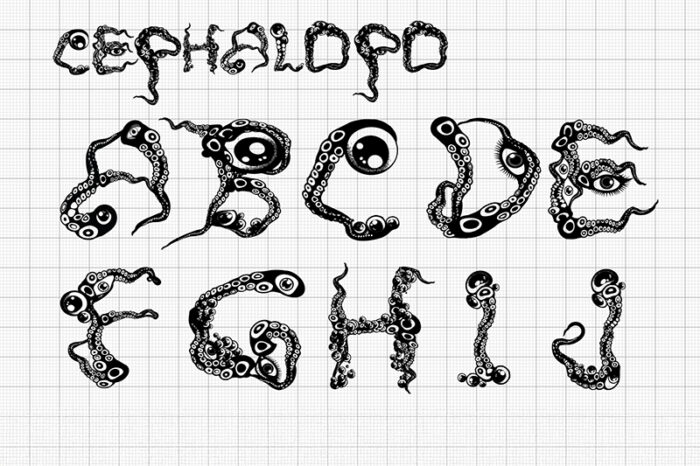 CEPHALOPO
ABCDE
FGHIJ